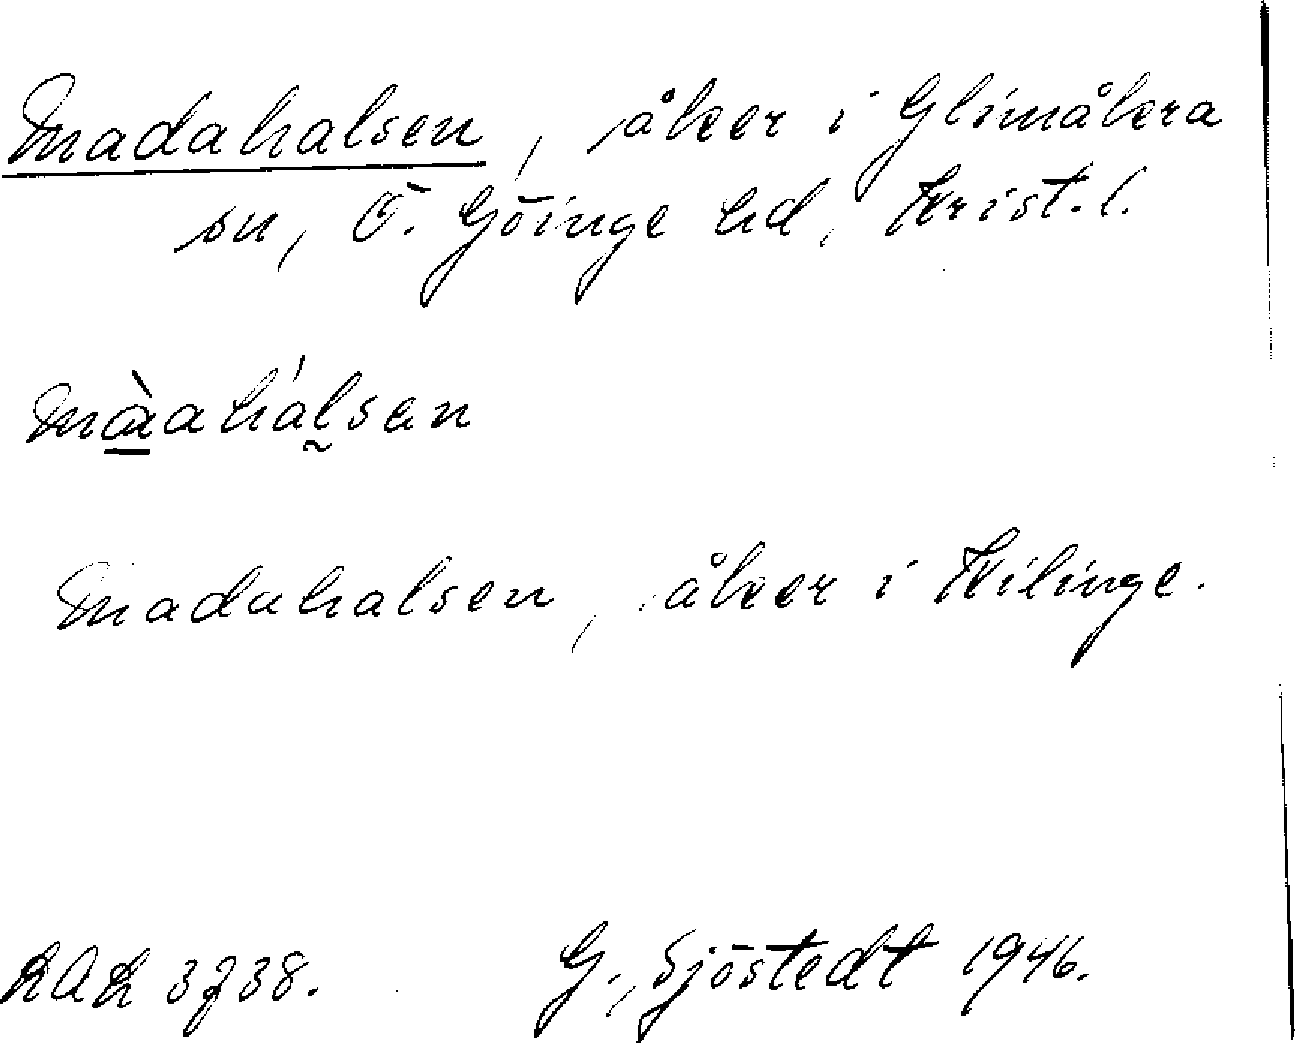 Madahalsen, åker i Glimåkra
sn, Ö. Göinge hd, Krist. l.
màahálsan
Madahalsen, åker i Kilinge.
LAL 3738. G. Sjöstedt 1946.